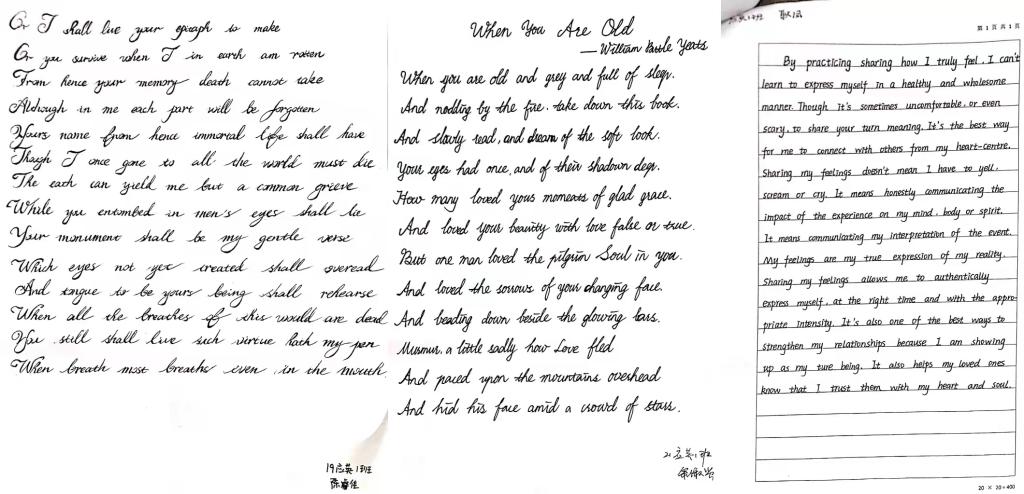 Or I shall live your epitaph to make
Or you survive when I in earth am rotten
From hence your memory death cannot take
Although in me each part will be forgotten
Yours name from hence immortal life shall have
Though I once gone to all the world must die
The eath can yield me but a common grieve
While you entombed in men's eyes shall lie
Your monument shall be my gentle verse
Which eyes not yet created shall overead
And tongue to be yours being shall rehearse
When all the breathes of this would are dead
You still shall live such virtue hath my pen
When breath most breaths even in the mouth.
19应英1班
陈睿佳
When You Are Old
—William Butle Yeats
When you are old and grey and full of sleep.
And nodding by the fire. take down this book.
And slowly read, and dream of the soft look.
Your eyes had once, and of their shadown deep.
How many loved yous moments of glad grace.
And loved your beauity with love false or true.
But one man loved the pilgrim Soul in you.
And loved the sorrows of your changing face.
And beading down beside the glowing bars.
Musmur, a little sadly how Love fled
And paced upon the mountains overhead
And hid his face amid a crowd of stars.
21应英1班
第1页 共1页
By practicing sharing how I truly feel, I can't
learn to express myself in a healthy and wholesome
manner. Though it's sometimes uncomfortable, or even
scary, to share your turn meaning. It's the best way
for me to connect with others from my heart-centre.
Sharing my feelings doesn't mean I have to yell,
scream or cry. It means honestly communicating the
impact of the experience on my mind, body or spirit.
It means communicating my interpretation of the event.
My feelings are my true expression of my reality.
Sharing my feelings allows me to authentically
express myself, at the right time and with the appro-
priate intensity. It's also one of the best ways to
strengthen my relationships because I am showing
up as my ture being. It also helps my loved ones
know that I trust them with my heart and soul.
20 × 20=400